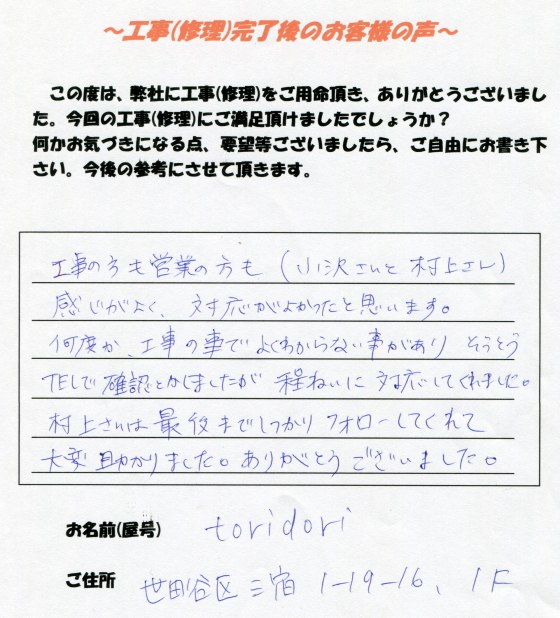 ～工事(修理)完了後のお客様の声～
この度は、弊社に工事(修理)をご用命頂き、ありがとうございまし
た。今回の工事(修理)にご満足頂けましたでしょうか？
何かお気づきになる点、要望等ございましたら、ご自由にお書き下
さい。今後の参考にさせて頂きます。
工事の方も営業の方も (小沢さんと村上さん)
感じがよく、対応がよかったと思います。
何度か、工事の事でよくわからない事があり そうとう
TELで確認とかしましたが 程ねいに対応してくれました。
村上さんは最後までしっかりフォローしてくれて
大変助かりました。ありがとうございました。
お名前(屋号) toridori
ご住所 世田谷区三宿 1-19-16、1F